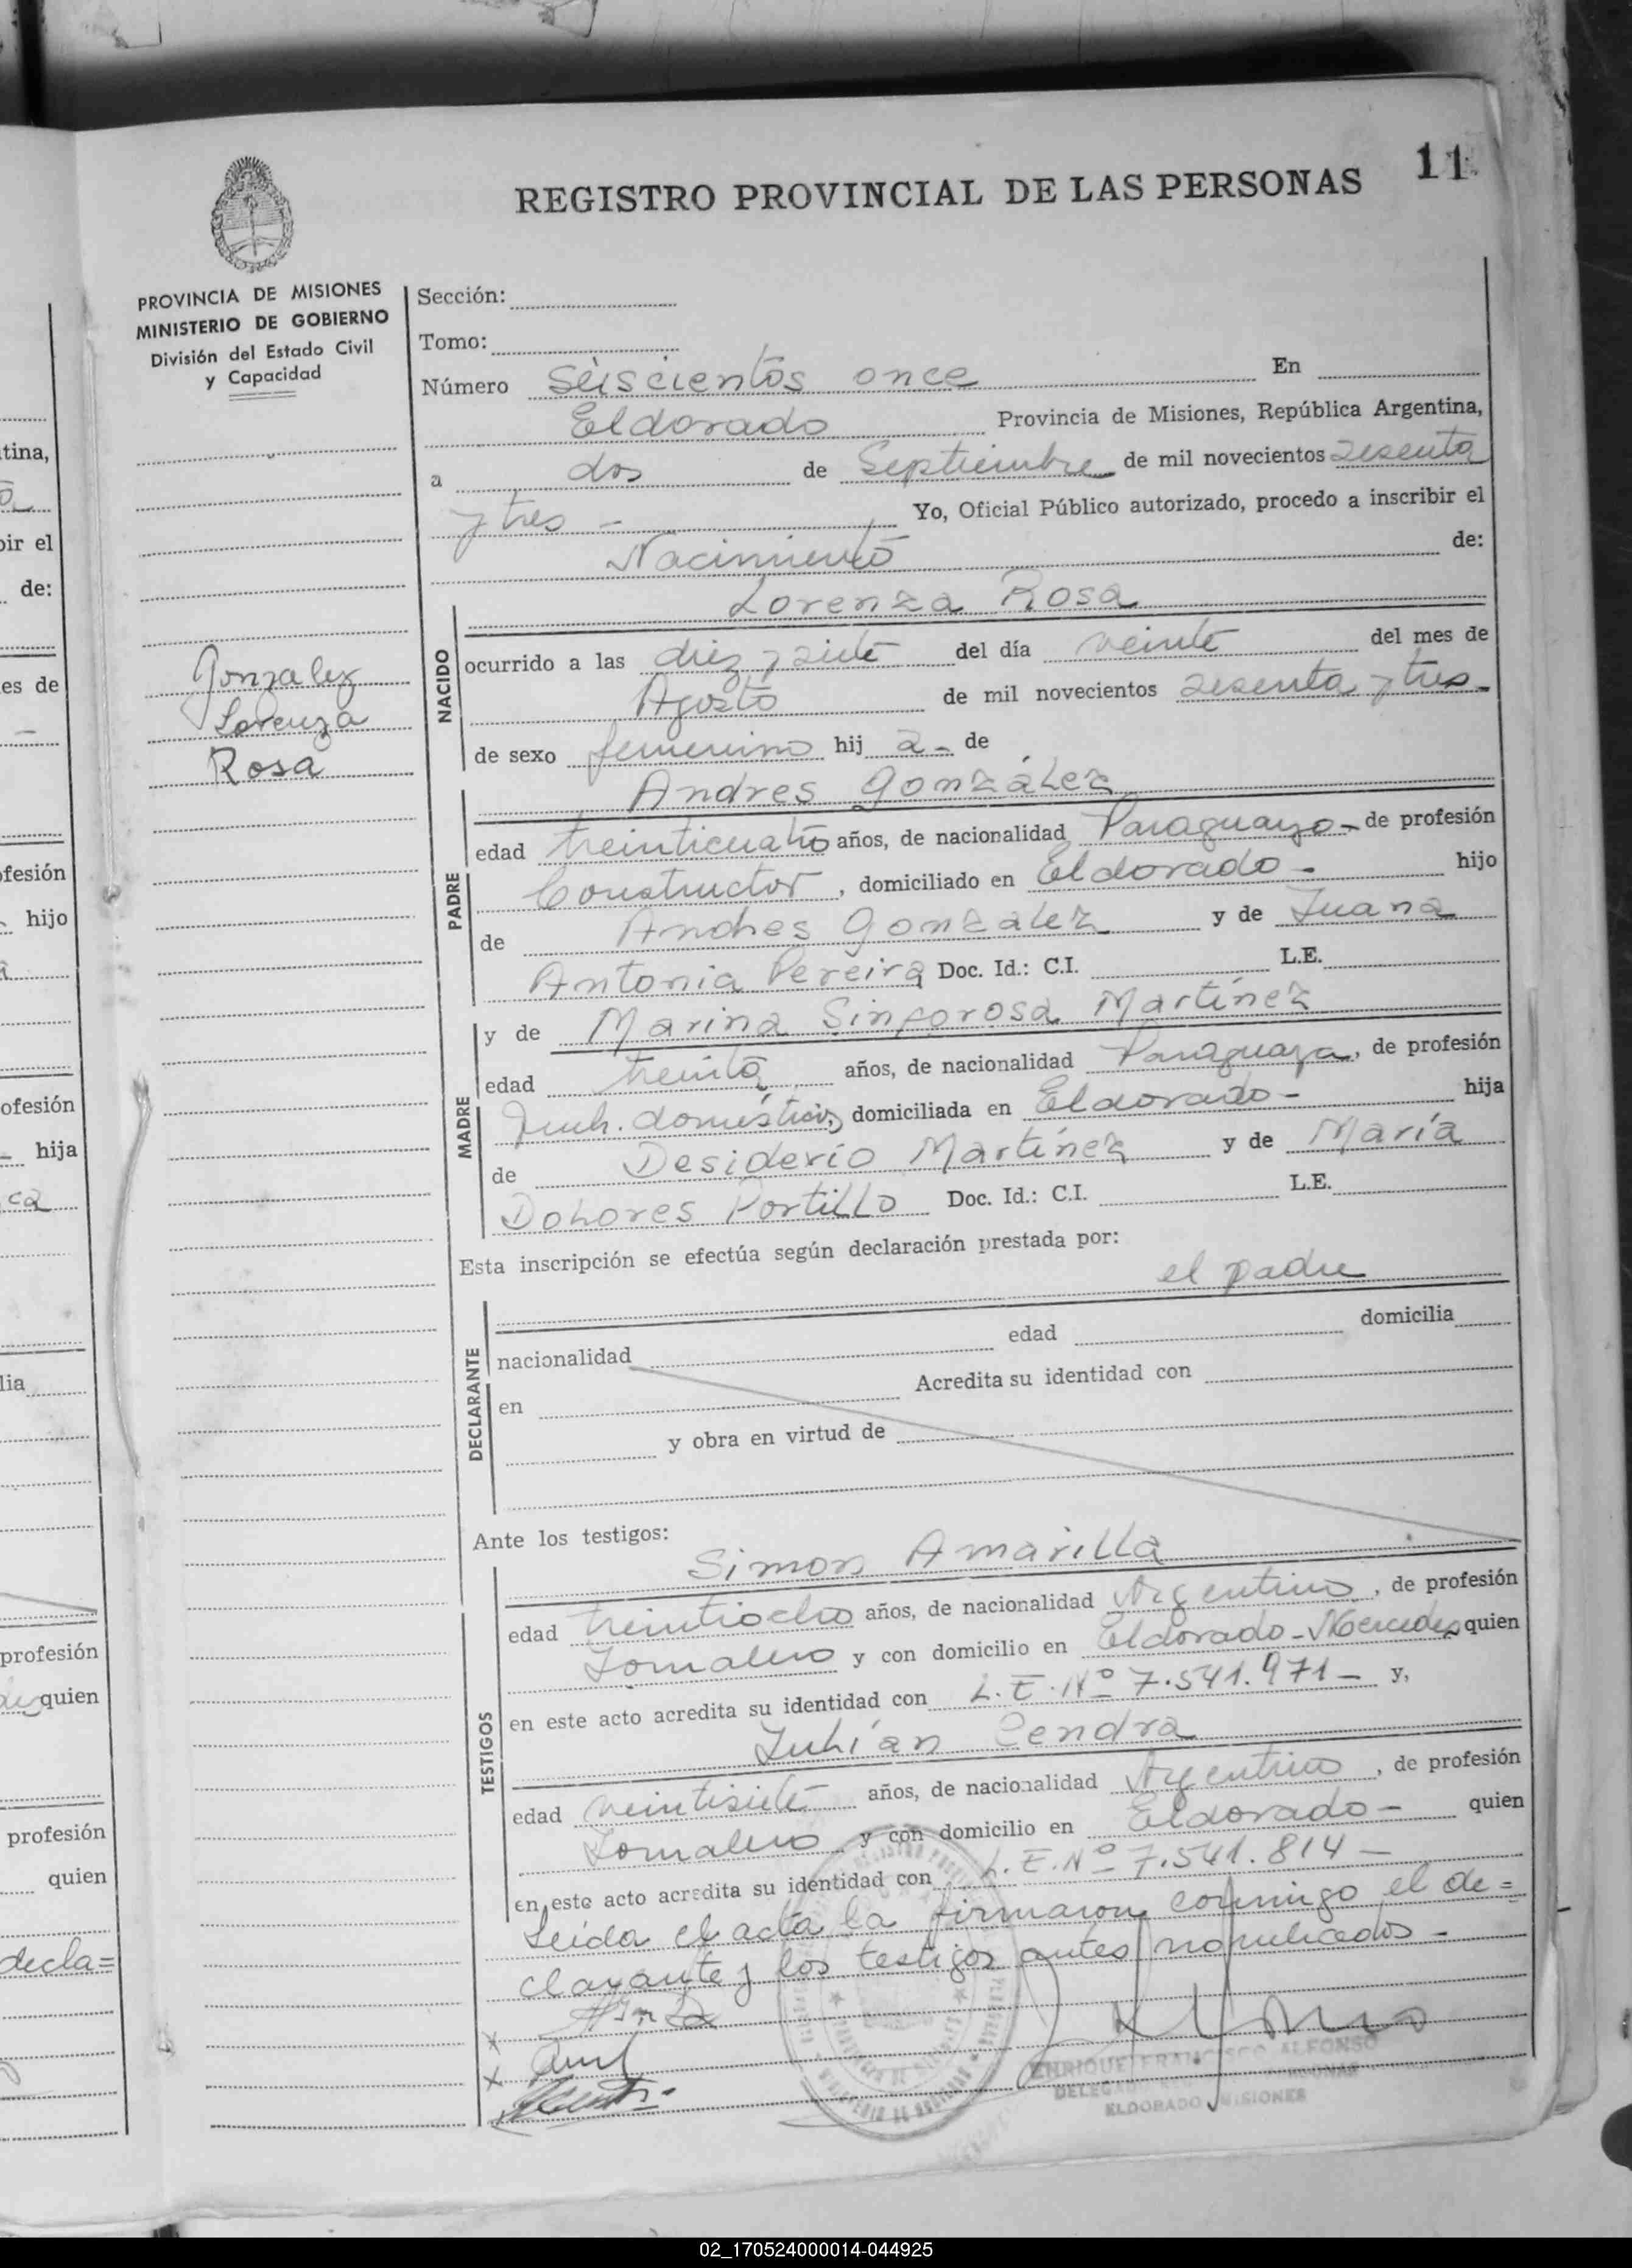 11
REGISTRO PROVINCIAL DE LAS PERSONAS
PROVINCIA DE MISIONES
MINISTERIO DE GOBIERNO
División del Estado Civil
y Capacidad
Gonzalez
Lorenza
Rosa
Sección:
Tomo:
Número seiscientos once En
Eldorado Provincia de Misiones, República Argentina,
a dos de Septiembre de mil novecientos sesenta
y tres - Yo, Oficial Público autorizado, procedo a inscribir el
Nacimiento de:
Lorenza Rosa
NACIDO
ocurrido a las diez y siete del día veinte del mes de
Agosto de mil novecientos sesenta y tres -
de sexo femenino hij a - de
Andres González
PADRE
edad treinticuatro años, de nacionalidad Paraguayo - de profesión
Constructor, domiciliado en Eldorado - hijo
de Andres Gonzalez y de Juana
Antonia Pereira Doc. Id.: C.I. L.E.
y de Marina Sinforosa Martínez
MADRE
edad treinta años, de nacionalidad Paraguaya, de profesión
domésticos, domiciliada en Eldorado - hija
de Desiderio Martínez y de María
Dolores Portillo Doc. Id.: C.I. L.E.
Esta inscripción se efectúa según declaración prestada por:
el padre
DECLARANTE
nacionalidad edad domicilia
en Acredita su identidad con
y obra en virtud de
Ante los testigos:
Simon Amarilla
TESTIGOS
edad treintiocho años, de nacionalidad Argentino, de profesión
Jornalero y con domicilio en Eldorado - Mercedes quien
en este acto acredita su identidad con L.E. Nº 7.541.971 - y,
Julián Cendra
edad veintisiete años, de nacionalidad Argentino, de profesión
Jornalero y con domicilio en Eldorado - quien
en este acto acredita su identidad con L.E. Nº 7.541.814 -
Leída el acta la firmaron conmigo el de=
clarante y los testigos antes nominados -
x
x
ENRIQUE FRANCISCO ALFONSO
ELDORADO MISIONES
tina,
bir el
de:
es de
ofesión
hijo
ofesión
hija
ca
lia
profesión
quien
profesión
quien
decla=
02_170524000014-044925